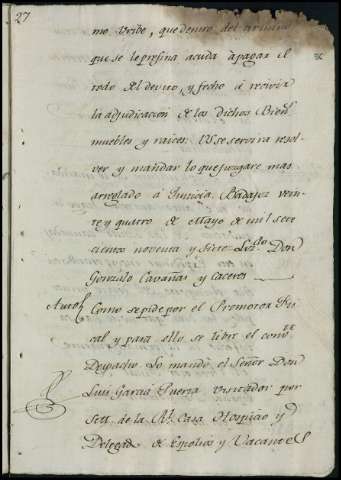 27
mo Uribe, que dentro del termino
que se le prefina acuda à pagar el
todo del devito, y fecho á recivir
la adjudicacion de los dichos Bien.
muebles y raices. VS se servira resol-
ver y mandar lo que juzgare mas
arreglado á Justicia. Badajoz vein-
te y quatro de Mayo de mil sete
cientos noventa y siete Lizdo Don
Gonzalo Cavañas y Caceres
Auto Como se pide por el Promotor Fis
cal y para ello se libre el convte
Despacho Lo mandó el Señor Don
Luis Garcia Puerta Visitador por
S. M. de la Rl. Casa Hospicio y
Delegado de Espolios y Vacantes